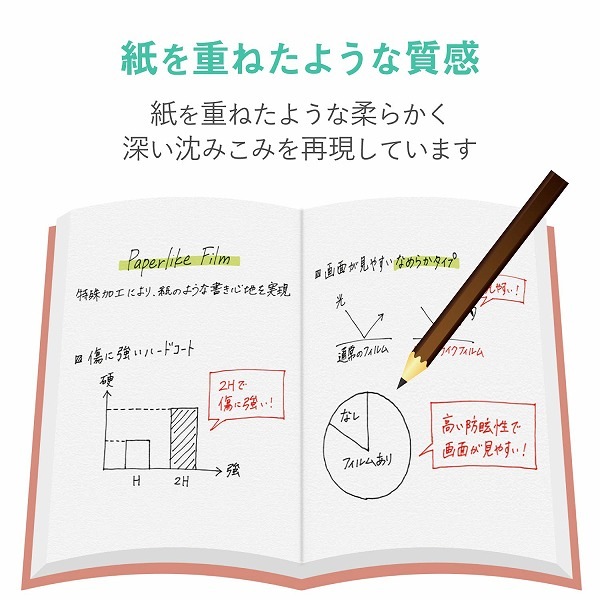 紙を重ねたような質感
紙を重ねたような柔らかく
深い沈みこみを再現しています
Paperlike Film
特殊加工により、紙のような書き心地を実現
傷に強いハードコート
硬
2Hで
傷に強い!
強
H
2H
画面が見やすいなめらかタイプ
光
やすい!
通常のフィルム
イクフィルム
なし
フィルムあり
高い防眩性で
画面が見やすい!